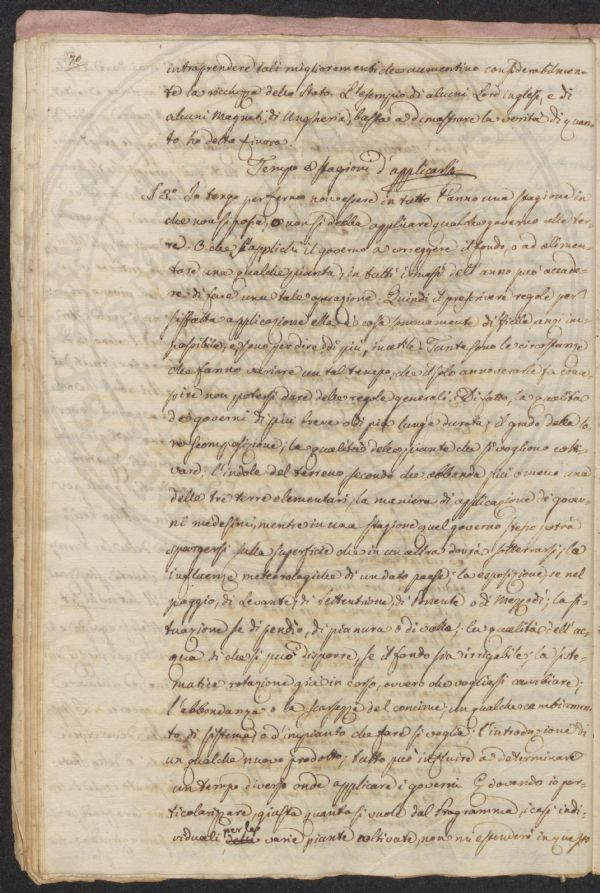 70
intraprendere tali miglioramenti che aumentino considerabilmen-
te la ricchezza dello Stato. L'esempio di alcuni Lord inglesi, e di
alcuni Magnati di Ungheria, basta a dimostrare la verità di quan-
to ho detto finora.
Tempo e Stagioni d'applicarli
§ 3.º Io tengo per fermo non essere in tutto l'anno una stagione in
che non si possa, o non si debba applicare qualche governo alle ter-
re. O che s'applichi il governo a correggere il fondo, o ad alimen-
tare una qualche pianta, in tutti i mesi dell'anno può accade-
re di fare una tale operazione. Quindi il prescrivere regole per
siffatta applicazione ella è cosa sommamente difficile anzi im-
possibile, e, sono per dire di più, inutile. Tante sono le circostanze
che fanno variare un tal tempo, che il solo annoverarle fa cono-
scere non potersi dare delle regole generali. Di fatto, la qualità
de' governi di più breve o di più lunga durata; il grado della lo-
ro scomposizione; la qualità delle piante che si vogliono colti-
vare; l'indole del terreno secondo che abbonda più o meno una
delle tre terre elementari; la maniera di applicazione de' gover-
ni medesimi, mentre in una stagione quel governo stesso potrà
spargersi sulla superficie che in un'altra dovrà sotterrarsi; le
influenze meteorologiche di un dato paese; la esposizione se nel
poggio, di Levante, di Settentrione, di Ponente o di Mezzodì; la si-
tuazione se di pendio, di pianura o di valle; la qualità dell'ac-
qua di che si può disporre, se il fondo sia irrigabile; la siste-
matica rotazione già in corso, ovvero che vogliasi cambiare;
l'abbondanza o la scarsezza del concime; un qualche cambiamen-
to di sistema, o d'impianto che fare si voglia; l'introduzione di
un qualche nuovo prodotto; tutto può influire a determinare
un tempo diverso onde applicare i governi. E dovendo io par-
ticolarizzare, giusta quanto si vuole dal Programma, i casi indi-
viduali per le varie piante coltivate, non mi estenderò in questo